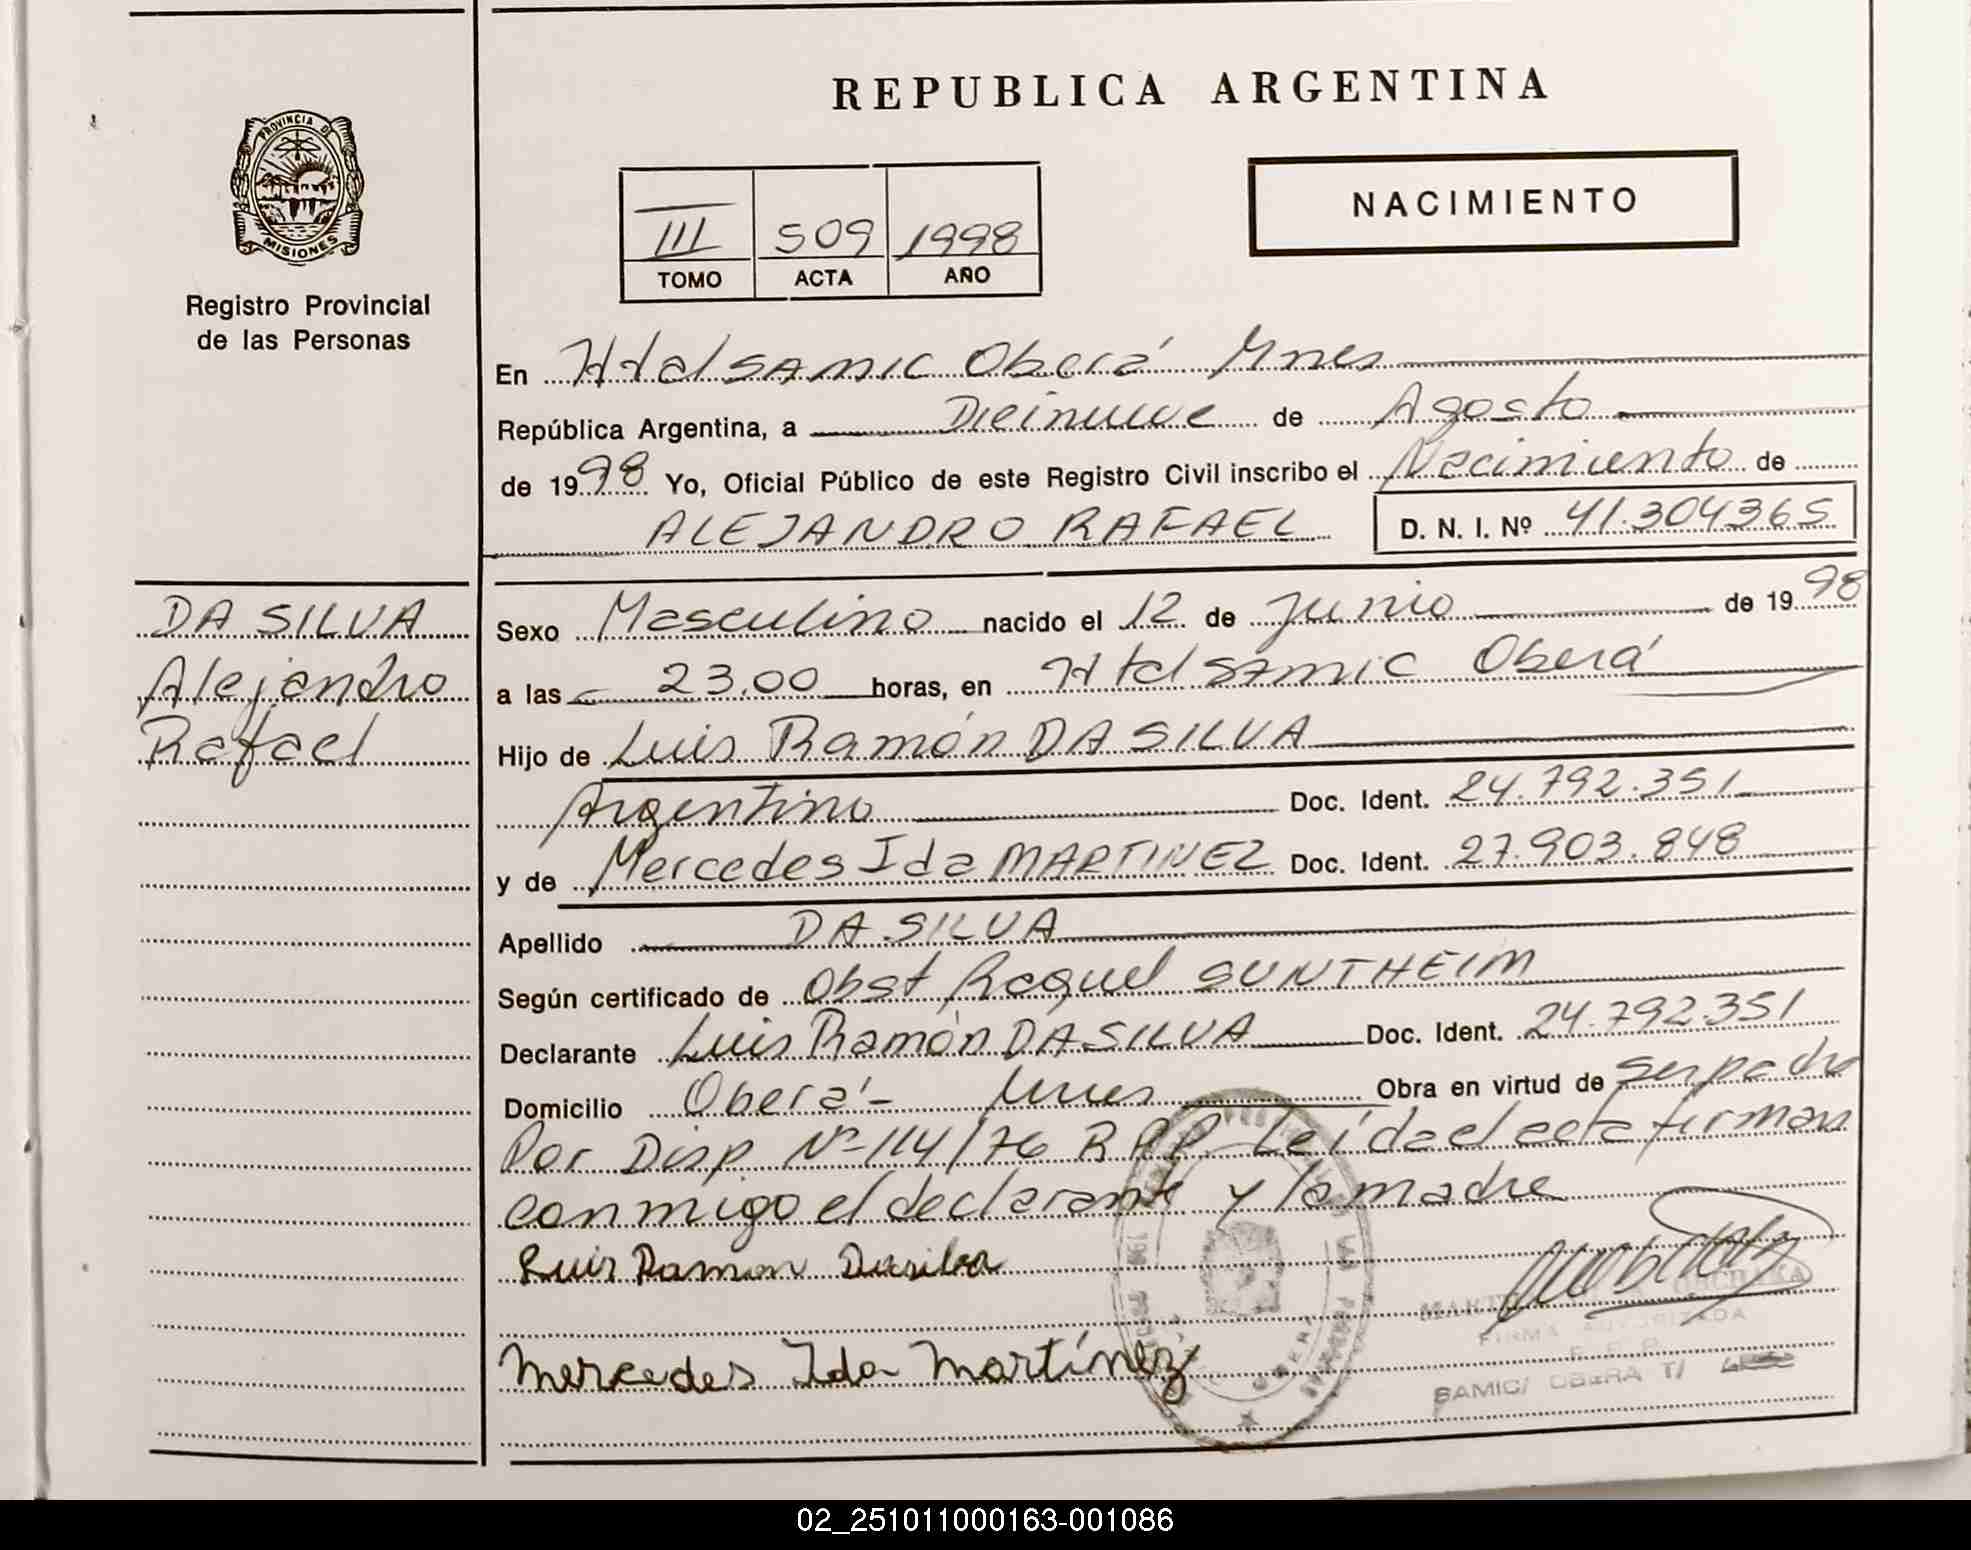 REPUBLICA ARGENTINA
PROVINCIA DE
MISIONES
Registro Provincial
de las Personas
III 509 1998
TOMO ACTA AÑO
NACIMIENTO
En Htal SAMIC Oberá Mnes
República Argentina, a Dieinueve de Agosto
de 1998 Yo, Oficial Público de este Registro Civil inscribo el Nacimiento de
ALEJANDRO RAFAEL D. N. I. Nº 41.304365
DA SILVA
Alejandro
Rafael
Sexo Masculino nacido el 12 de Junio de 1998
a las 23.00 horas, en Htal SAMIC Oberá
Hijo de Luis Ramón DA SILVA
Argentino Doc. Ident. 24.792.351
y de Mercedes Ida MARTINEZ Doc. Ident. 27.903.848
Apellido DA SILVA
Según certificado de Obst Raquel SUNTHEIM
Declarante Luis Ramón DA SILVA Doc. Ident. 24.792.351
Domicilio Oberá - Mnes Obra en virtud de ser padre
Por Disp Nº 114/76 R.P.P. Leída el acta firman
conmigo el declarante y la madre
Luis Ramon Dasilva
Mercedes Ida Martínez
FIRMA AUTORIZADA
SAMIC/ OBERA T/
02_251011000163-001086